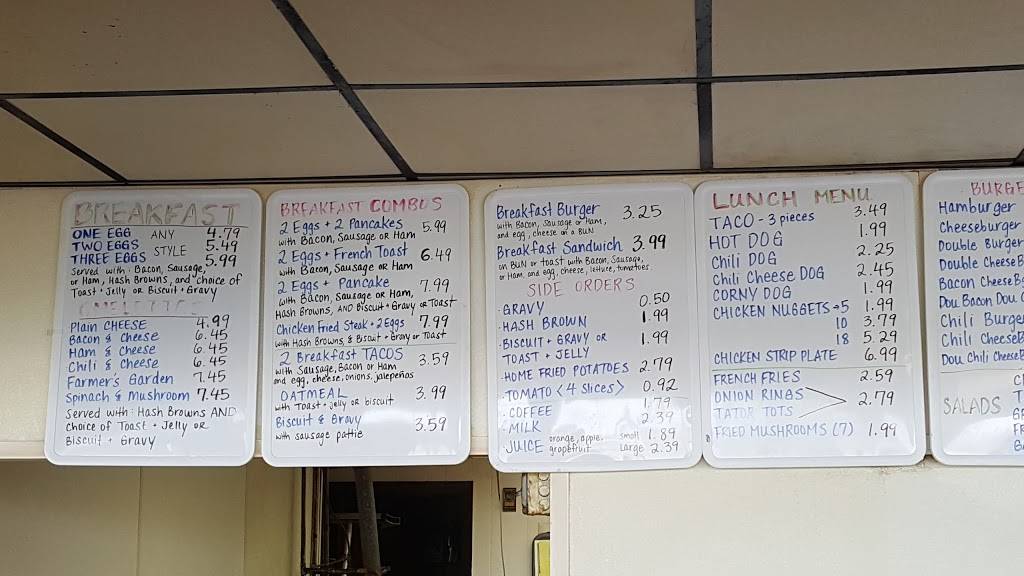 BREAKFAST
ONE EGG ANY 4.79
TWO EGGS STYLE 5.49
THREE EGGS 5.99
Served with: Bacon, Sausage,
or Ham, Hash Browns, and choice of
Toast + Jelly or Biscuit + Gravy
OMELETTES
Plain CHEESE 4.99
Bacon & Cheese 6.45
Ham & Cheese 6.45
Chili & Cheese 6.45
Farmer's Garden 7.45
Spinach & Mushroom 7.45
Served with: Hash Browns AND
choice of Toast + Jelly or
Biscuit + Gravy
BREAKFAST COMBOS
2 Eggs + 2 Pancakes 5.99
with Bacon, Sausage or Ham
2 Eggs + French Toast 6.49
with Bacon, Sausage or Ham
2 Eggs + Pancake 7.99
with Bacon, Sausage or Ham,
Hash Browns, AND Biscuit + Gravy or Toast
Chicken Fried Steak + 2 Eggs 7.99
with Hash Browns, & Biscuit + Gravy or Toast
2 Breakfast TACOS 3.59
with Sausage, Bacon or Ham
and egg, cheese, onions, jalepeños
OATMEAL 3.99
with Toast + jelly or biscuit
Biscuit & Gravy 3.59
with sausage pattie
Breakfast Burger 3.25
with Bacon, Sausage or Ham,
and egg, cheese on a BUN
Breakfast Sandwich 3.99
on BUN or toast with Bacon, Sausage,
or Ham, and egg, cheese, lettuce, tomatoes
SIDE ORDERS
GRAVY 0.50
HASH BROWN 1.99
BISCUIT + GRAVY or 1.99
TOAST + JELLY
HOME FRIED POTATOES 2.79
TOMATO <4 slices> 0.92
COFFEE 1.79
MILK 2.39
JUICE orange, apple, small 1.89
grapefruit large 2.39
LUNCH MENU
TACO - 3 pieces 3.49
HOT DOG 1.99
Chili DOG 2.25
Chili Cheese DOG 2.45
CORNY DOG 1.99
CHICKEN NUGGETS → 5 1.99
10 3.79
18 5.29
CHICKEN STRIP PLATE 6.99
FRENCH FRIES 2.59
ONION RINGS 2.79
TATOR TOTS
8 FRIED MUSHROOMS (7) 1.99
BURGE
Hamburger
Cheeseburger
Double Burger
Double Cheese B
Bacon Cheese B
Dou Bacon Dou C
Chili Burger
Chili Cheese B
Dou Chili Cheese B
SALADS